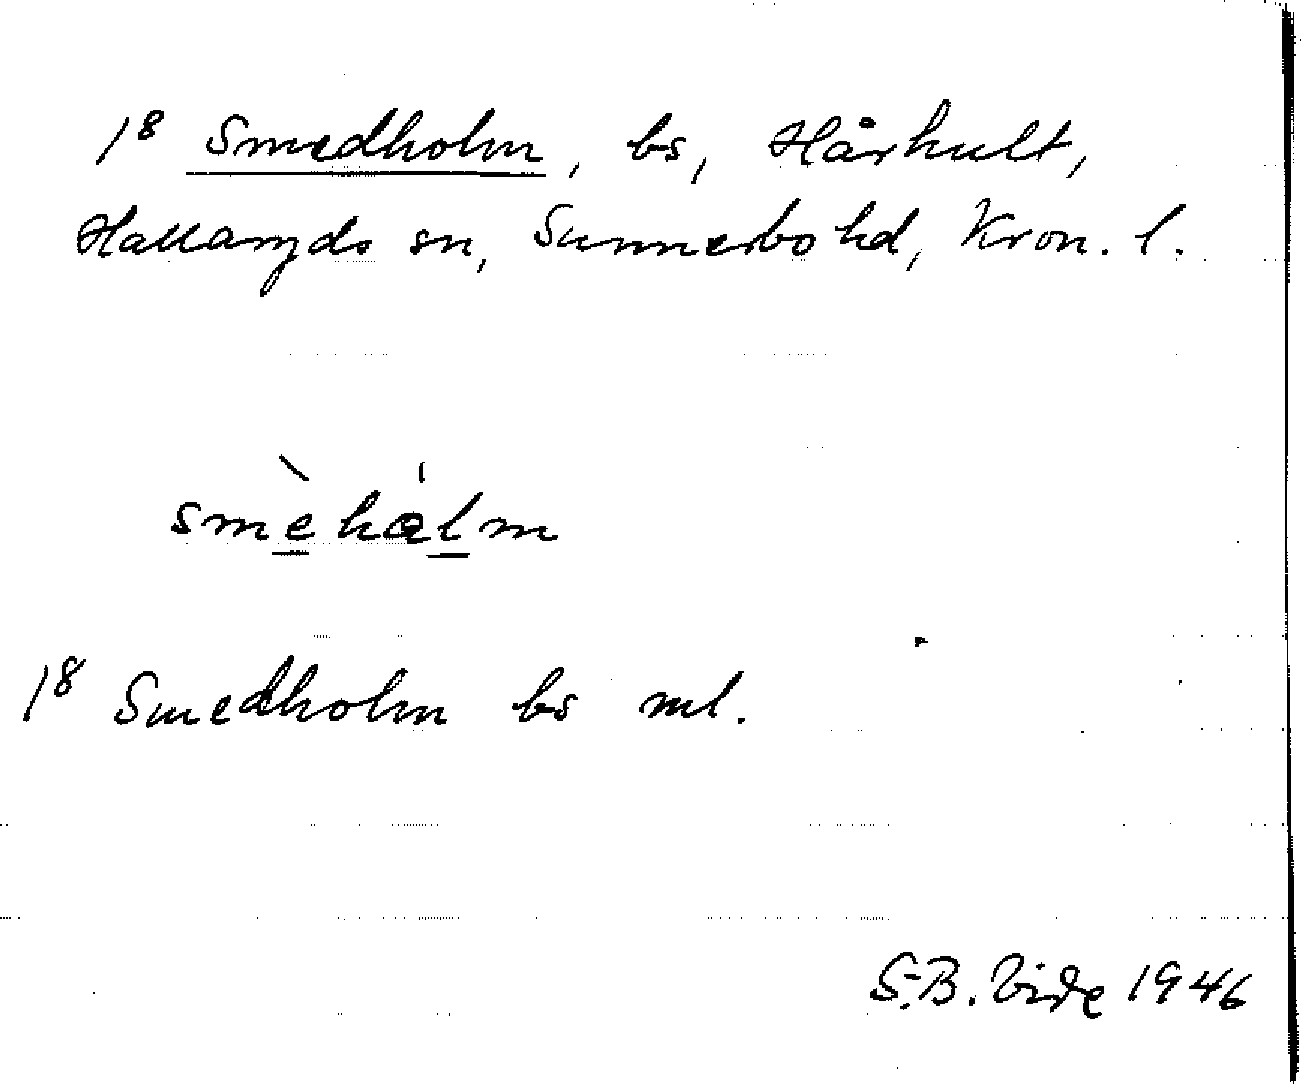 1⁸ Smedholm, bs, Hårhult,
Hallaryds sn, Sunnerbo hd, Kron. l.
smèhålm
1⁸ Smedholm bs ml.
S.-B. Vide 1946